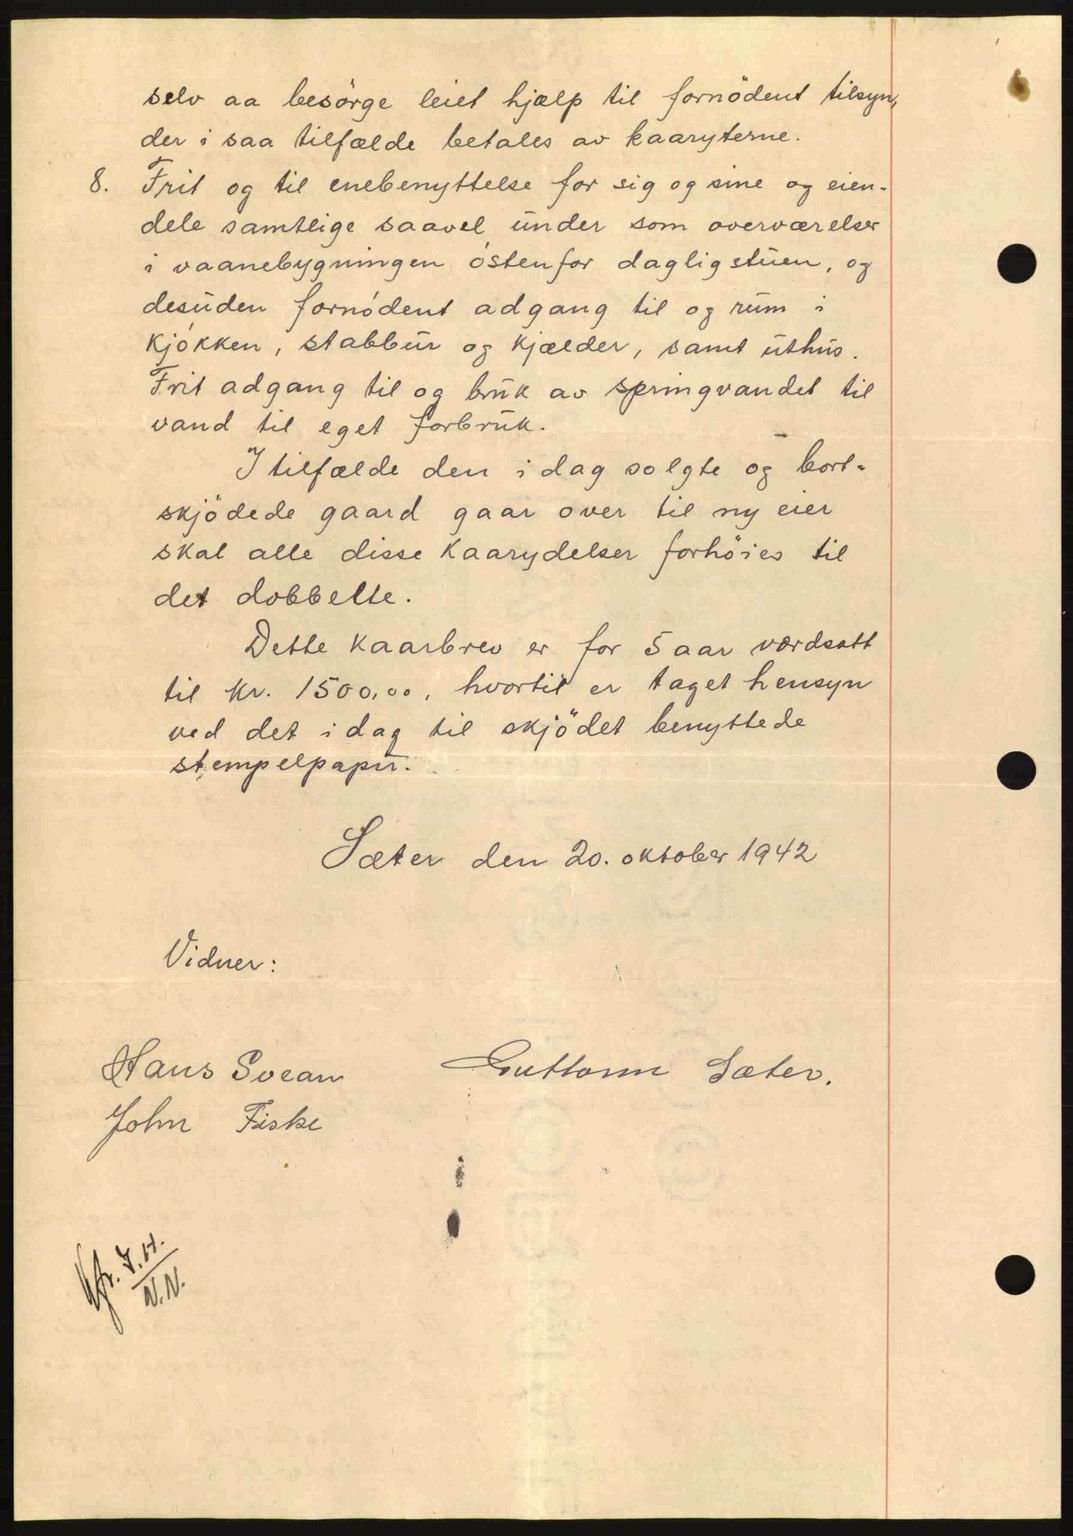 selv aa besörge leiet hjælp til fornödent tilsyn,
der i saa tilfælde betales av kaaryterne.
8. Frit og til enebenyttelse for sig og sine og eien-
dele samtlige saavel under som overværelser
i vaanebygningen östenfor dagligstuen, og
desuden fornödent adgang til og rum i
kjökken, stabbur og kjælder, samt uthus.
Frit adgang til og bruk av springvandet til
vand til eget forbruk.
I tilfælde den i dag solgte og bort-
skjödede gaard gaar over til ny eier
skal alle disse kaarydelser forhöies til
det dobbelte.
Dette kaarbrev er for 5 aar værdsatt
til kr. 1500,00, hvortil er taget hensyn
ved det i dag til skjödet benyttede
stempelpapir.
Sæter den 20. oktober 1942
Vidner:
Hans Svean Guttorm Sæter.
John Fiske
Kfr. I.H.
N.N.